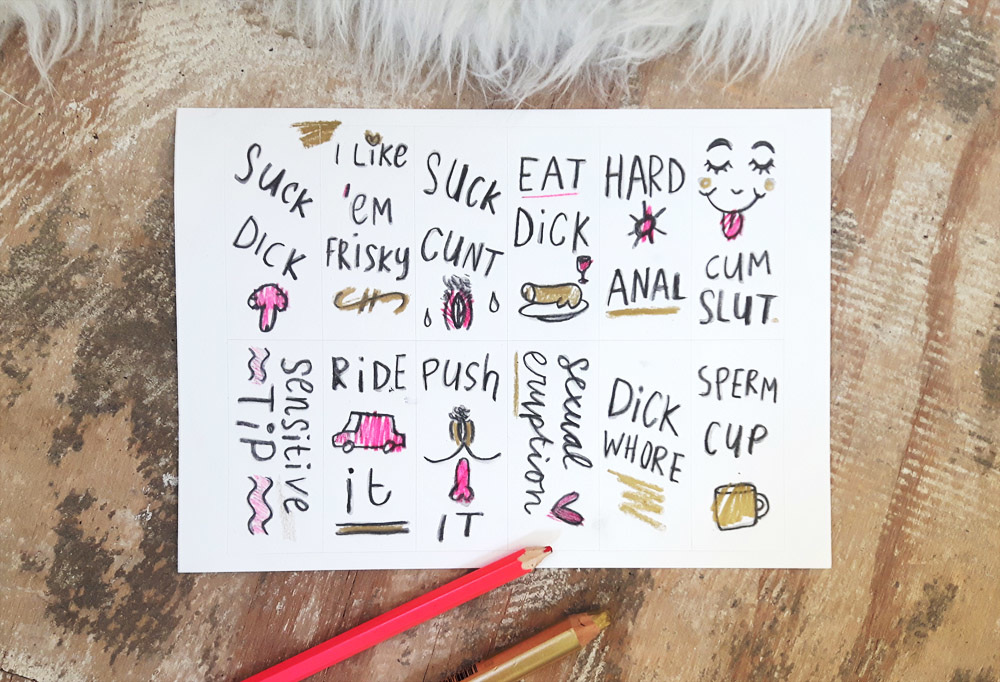 SUCK
DICK
I Like
'EM
FRiSKy
SUCK
CUNT
EAT
DiCK
HARD
ANAL
CUM
SLUT
Sensitive
Tip
RiDE
it
PUSh
IT
Sexual
eruption
DiCK
WHORE
SPERM
CUP